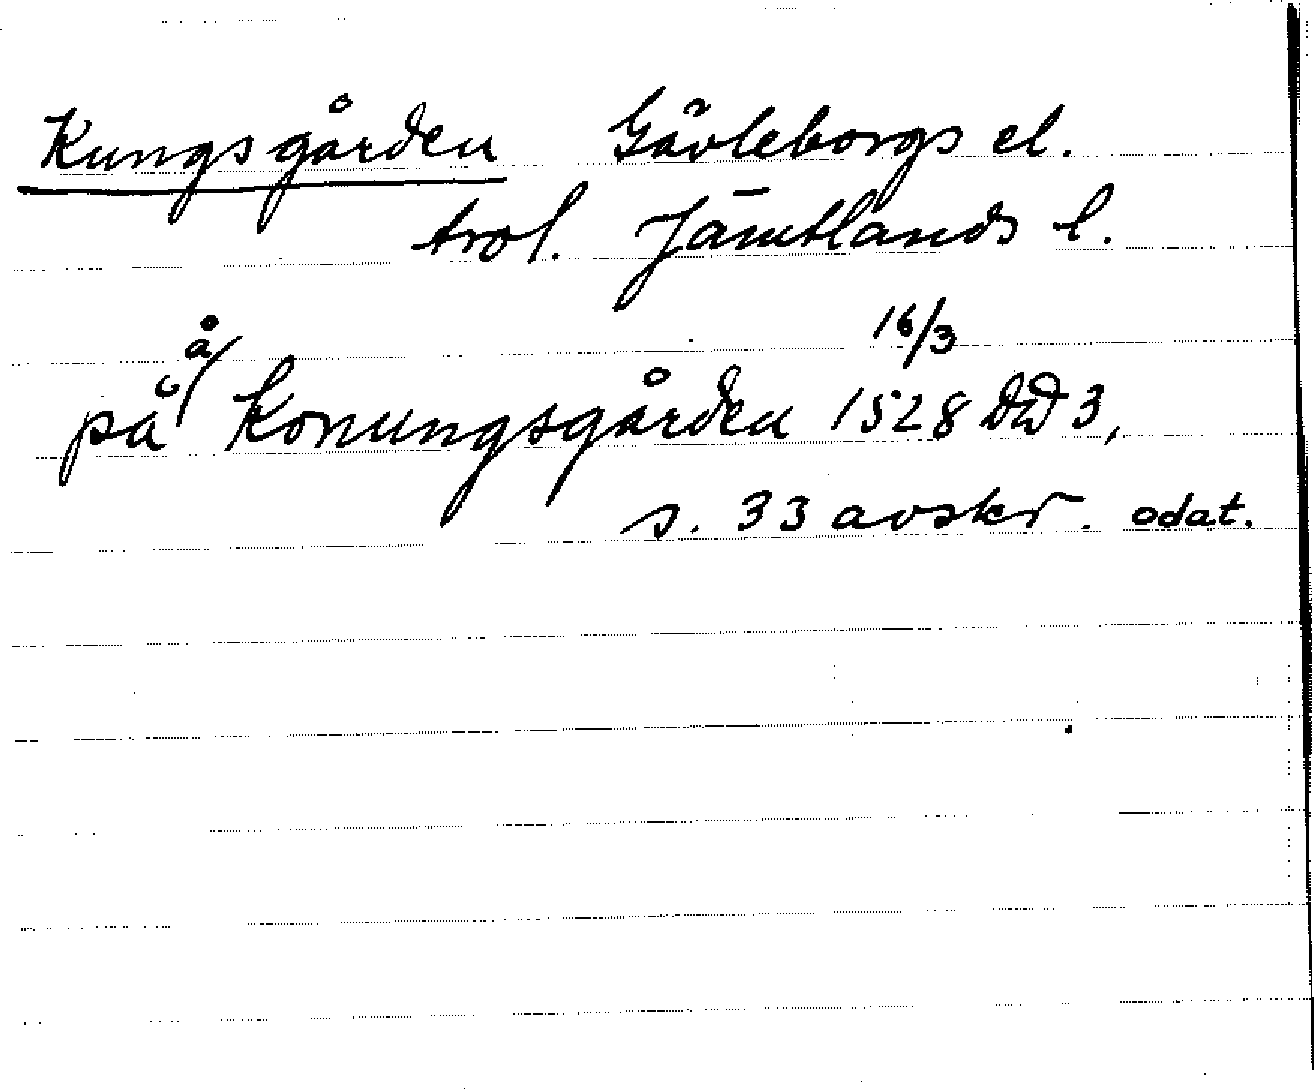 Kungsgården Gävleborgs el.
trol. Jämtlands l.
på å/ Konungsgården 16/3 1528 DD 3,
s. 33 avskr. odat.